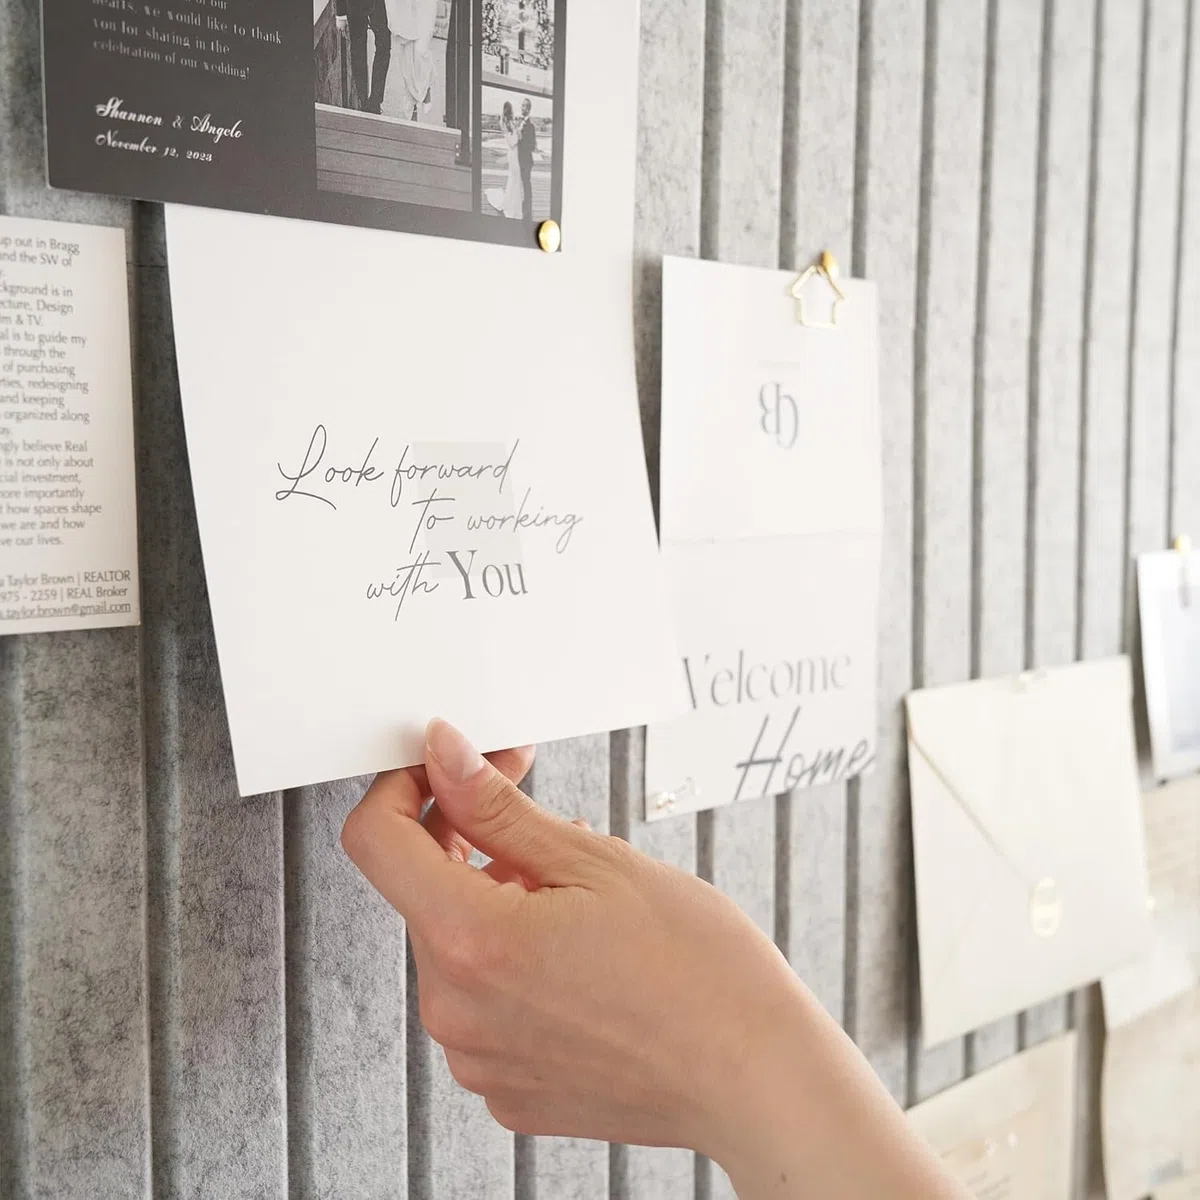 of our
hearts, we would like to thank
you for sharing in the
celebration of our wedding!
Shannon & Angelo
November 12, 2023
up out in Bragg
and the SW of
kground is in
ecture, Design
m & TV.
al is to guide my
through the
of purchasing
rties, redesigning
and keeping
organized along
ay.
ngly believe Real
is not only about
cial investment,
more importantly
t how spaces shape
we are and how
ve our lives.
a Taylor Brown | REALTOR
975 - 2259 | REAL Broker
a.taylor.brown@gmail.com
Look forward
to working
with You
Welcome
Home